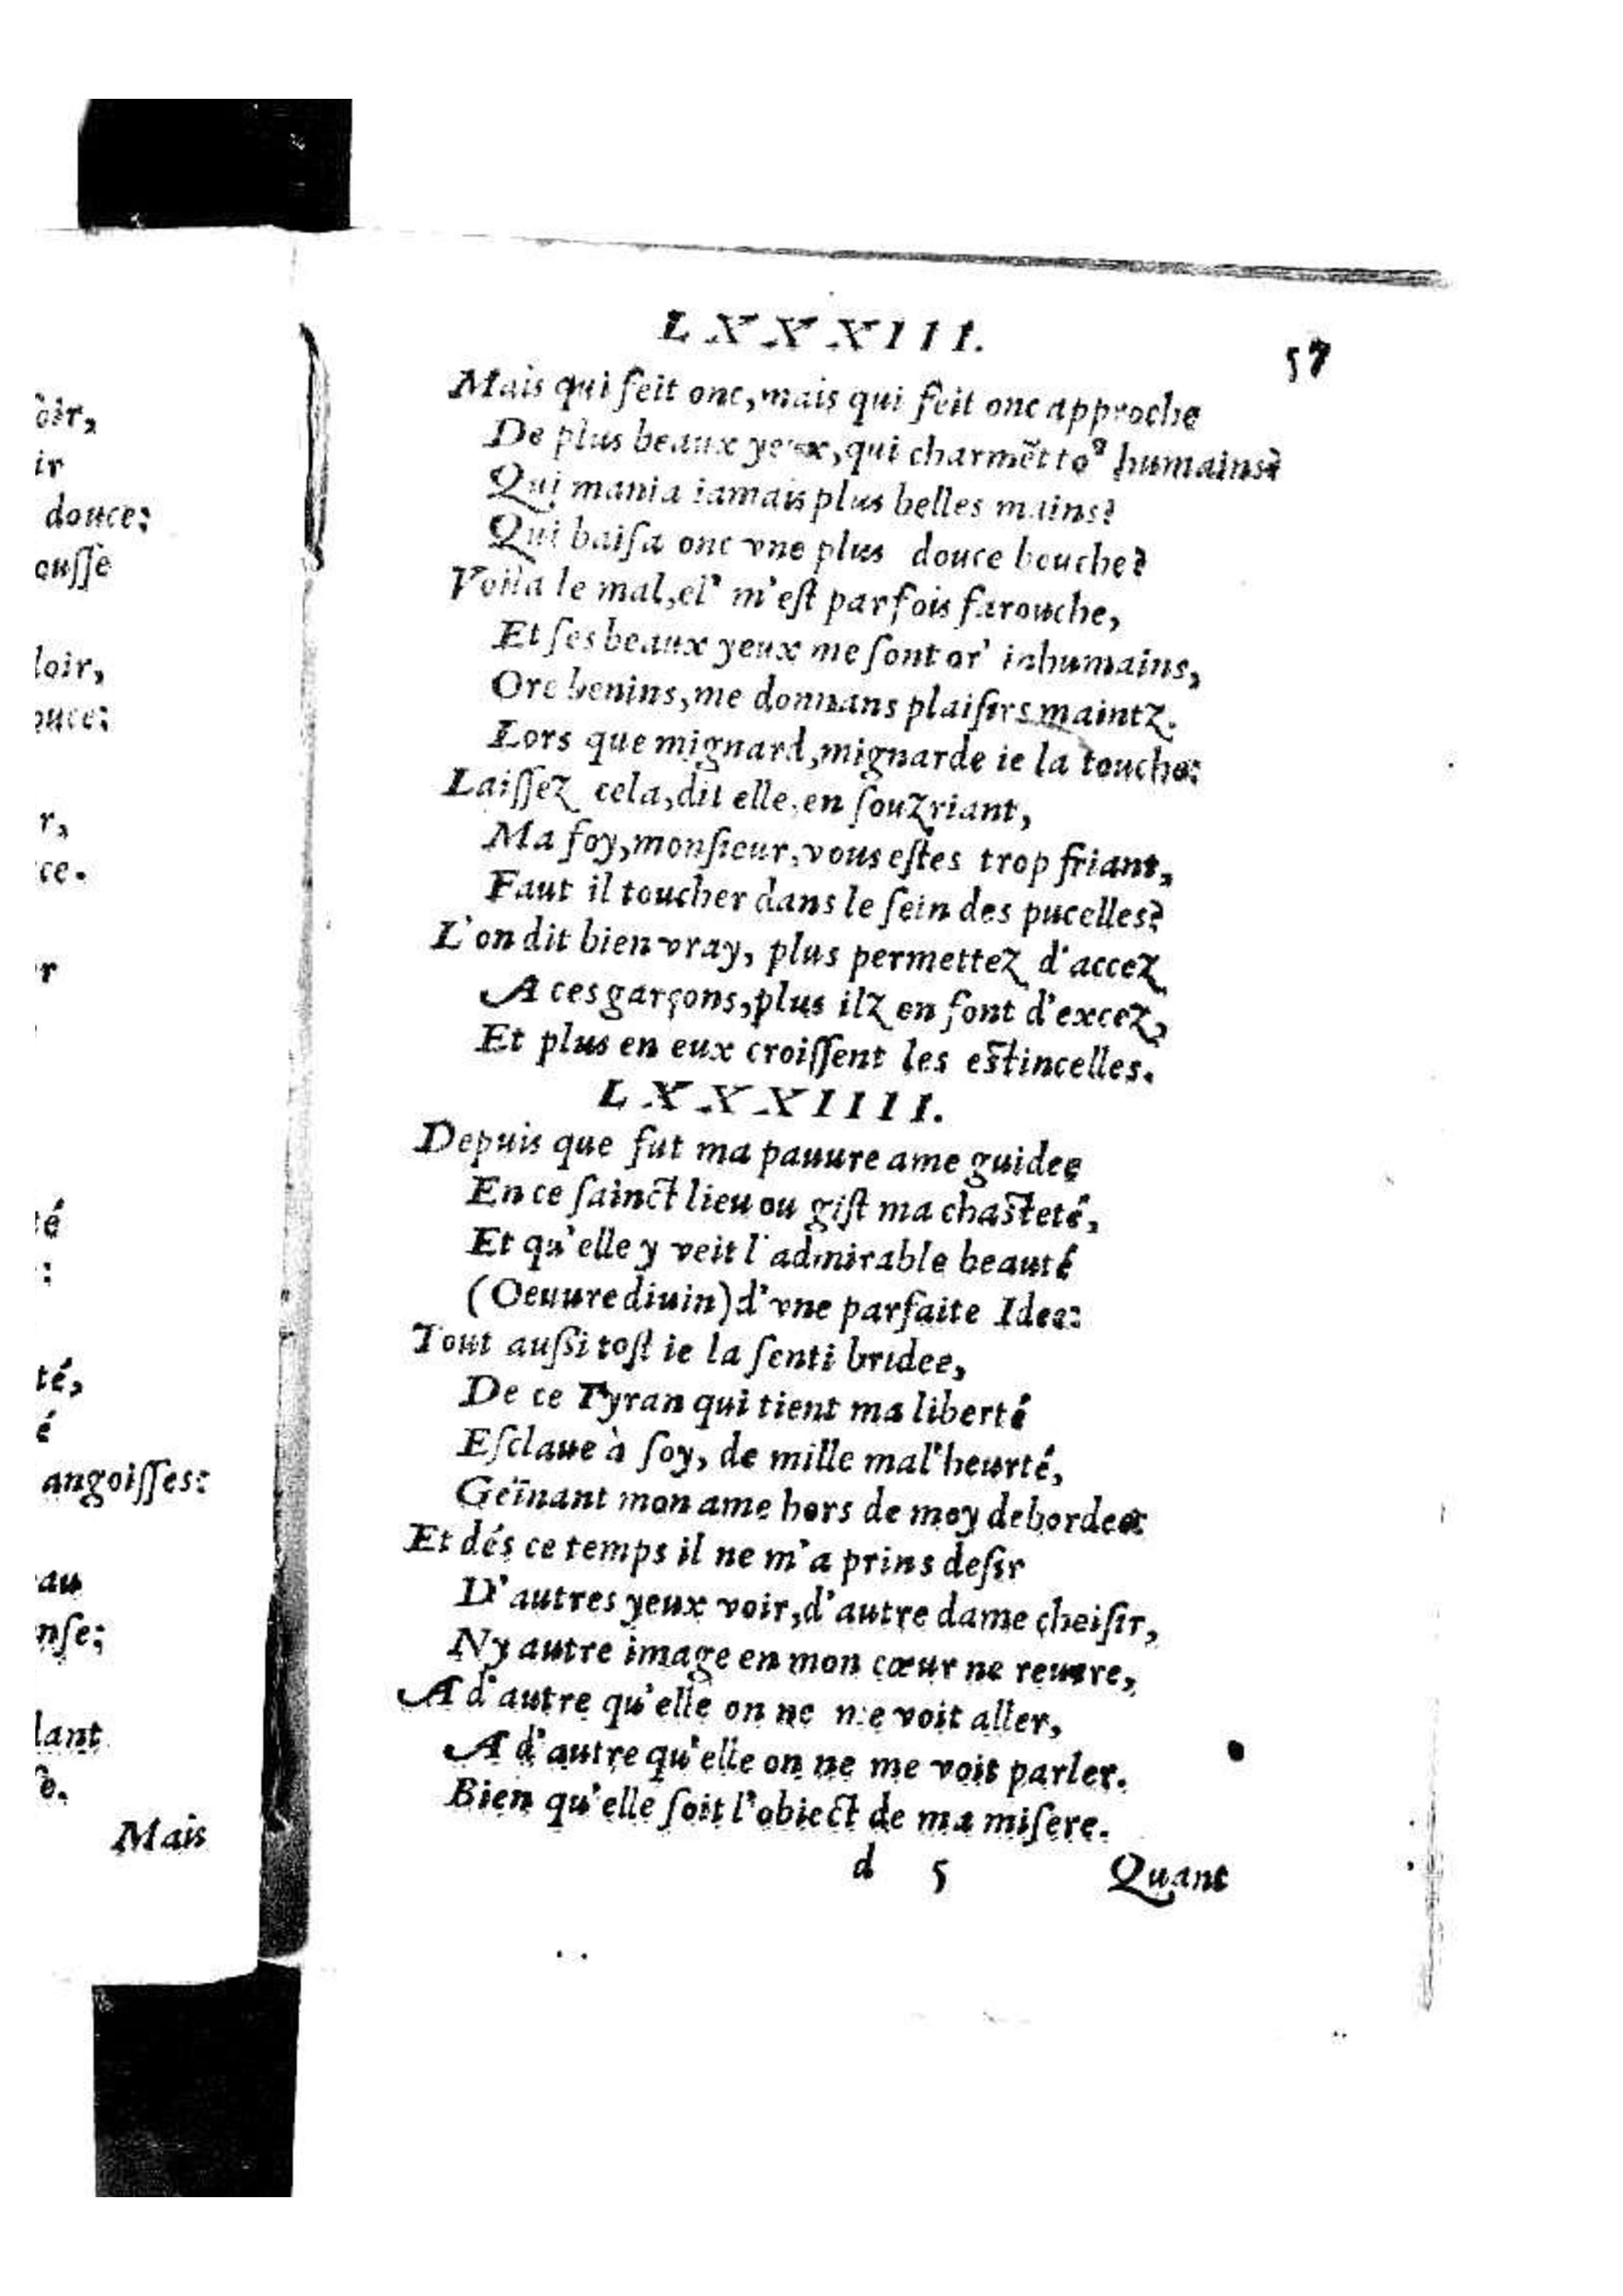 oir,
ir
douce:
ousse
loir,
ouce:
r,
ce.
r
té
:
té,
é
angoisses:
au
nse;
lant
se.
Mais
LXXXIII.
57
Mais qui feit onc, mais qui feit onc approche
De plus beaux yeux, qui charmẽt toꝰ humains?
Qui mania iamais plus belles mains?
Qui baisa onc vne plus douce bouche?
Voila le mal, el' m'est parfois farouche,
Et ses beaux yeux me sont or' inhumains,
Ore benins, me donnans plaisirs maintz.
Lors que mignard, mignarde ie la touche:
Laissez cela, dit elle, en souzriant,
Ma foy, monsieur, vous estes trop friant,
Faut il toucher dans le sein des pucelles?
L'on dit bien vray, plus permettez d'accez
A ces garçons, plus ilz en font d'excez,
Et plus en eux croissent les estincelles.
LXXXIIII.
Depuis que fut ma pauure ame guidee
En ce sainct lieu ou gist ma chasteté,
Et qu'elle y veit l'admirable beauté
(Oeuure diuin) d'vne parfaite Idee:
Tout aussi tost ie la senti bridee,
De ce Tyran qui tient ma liberté
Esclaue à soy, de mille mal'heurté,
Geïnant mon ame hors de moy debordee:
Et dés ce temps il ne m'a prins desir
D'autres yeux voir, d'autre dame choisir,
Ny autre image en mon cœur ne reuere,
A d'autre qu'elle on ne me voit aller,
A d'autre qu'elle on ne me voit parler.
Bien qu'elle soit l'obiect de ma misere.
d 5 Quant